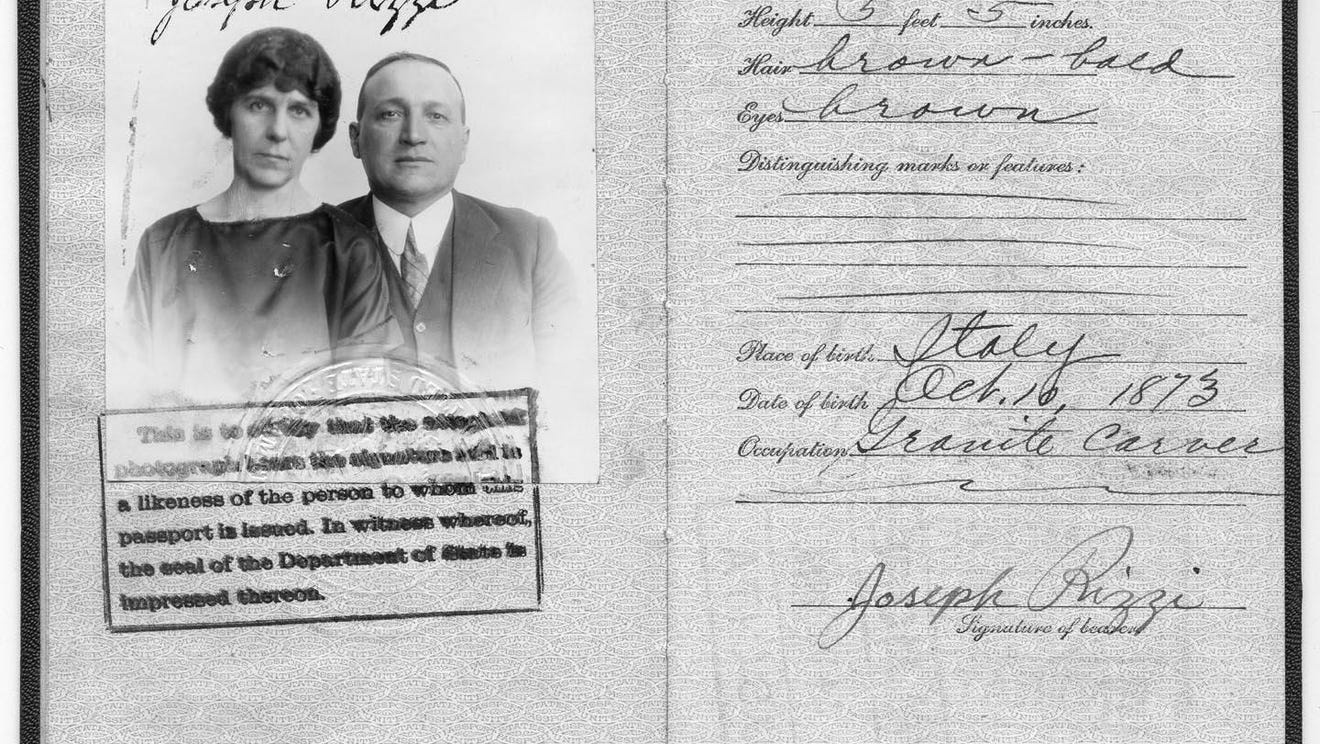 Joseph Rizzi
This is to certify that the attached
photograph bears the signature and is
a likeness of the person to whom this
passport is issued. In witness whereof,
the seal of the Department of State is
impressed thereon.
Height 5 feet 5 inches.
Hair brown - bald
Eyes brown
Distinguishing marks or features:
Place of birth Italy
Date of birth Oct. 10, 1873
Occupation Granite Carver
Joseph Rizzi
Signature of bearer